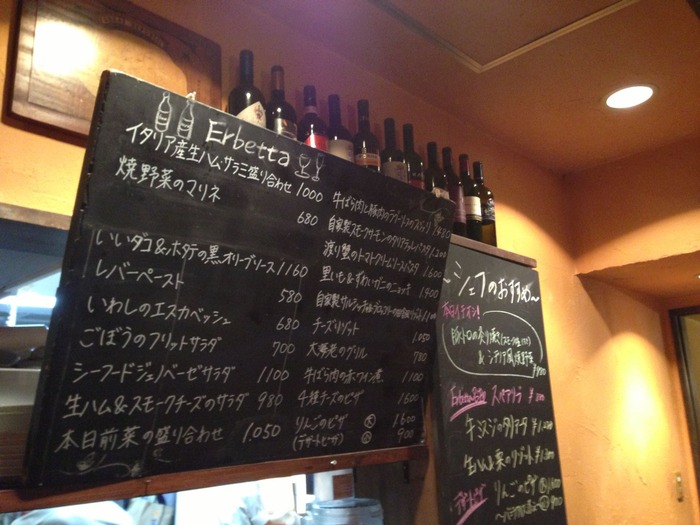 Erbetta
イタリア産生ハム・サラミ盛り合わせ 1000
焼野菜のマリネ 680
いいダコ&ホタテの黒オリーブソース 1160
レバーペースト 580
いわしのエスカベッシュ 680
ごぼうのフリットサラダ 700
シーフードジェノベーゼサラダ 1100
生ハム&スモークチーズのサラダ 980
本日前菜の盛り合わせ 1,050
牛ばら肉と豚肉のラグーソースの
自家製スモークサーモンの 1,200
渡り蟹のトマトクリームソースパスタ 1,600
里いも&ずわいガニのニョッキ 1,400
自家製
チーズリゾット 1,050
大葱のグリル 780
牛ばら肉の赤ワイン煮 1,100
4種チーズのピザ 1600
りんごのピザ 大 1600
(デザートピザ) 小 900
シェフのおすすめ〜
本日イチオシ!
&シチリア風焼野菜
Erbetta スペアリブ
牛
生ハム&栗のリゾット
デザートピザ りんごのピザ